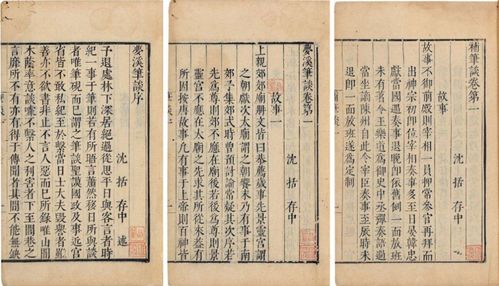 夢溪筆談序
沈括存中述
予退處林下深居絕過從思平日與客言者時
紀一事于筆則若有所晤言蕭然移日所與談
者唯筆硯而已謂之筆談聖謨國政及事近宮
省皆不敢私紀至於繫當日士大夫毀譽者雖
善亦不欲書非止不言人惡而已所錄唯山間
木蔭率意談噱不繫人之利害者下至閭巷之
言靡所不有亦有得于傳聞者其間不能無缺
夢溪筆談卷第一
沈括存中
故事一
上親郊郊廟冊文皆曰恭薦歲事先景靈宮謂
之朝獻次太廟謂之朝饗末乃有事于南
郊予集郊式時曾預討論常疑其次序若
先為尊則郊不應在廟後若後為尊則景
靈宮不應在太廟之先求其所從來蓋有
所因按唐故事凡有事于上帝則百神皆
補筆談卷第一
沈括存中
故事
故事不御前殿則宰相一員押常參官再拜而
出神宗初即位宰相奏事多至日晏韓忠
獻當國遇奏事退晚即依舊例一面放班
未有著令王樂道為御史中丞彈奏語過
當坐謫陳州自此令宰臣奏事至辰時未
退即一面放班遂為定制